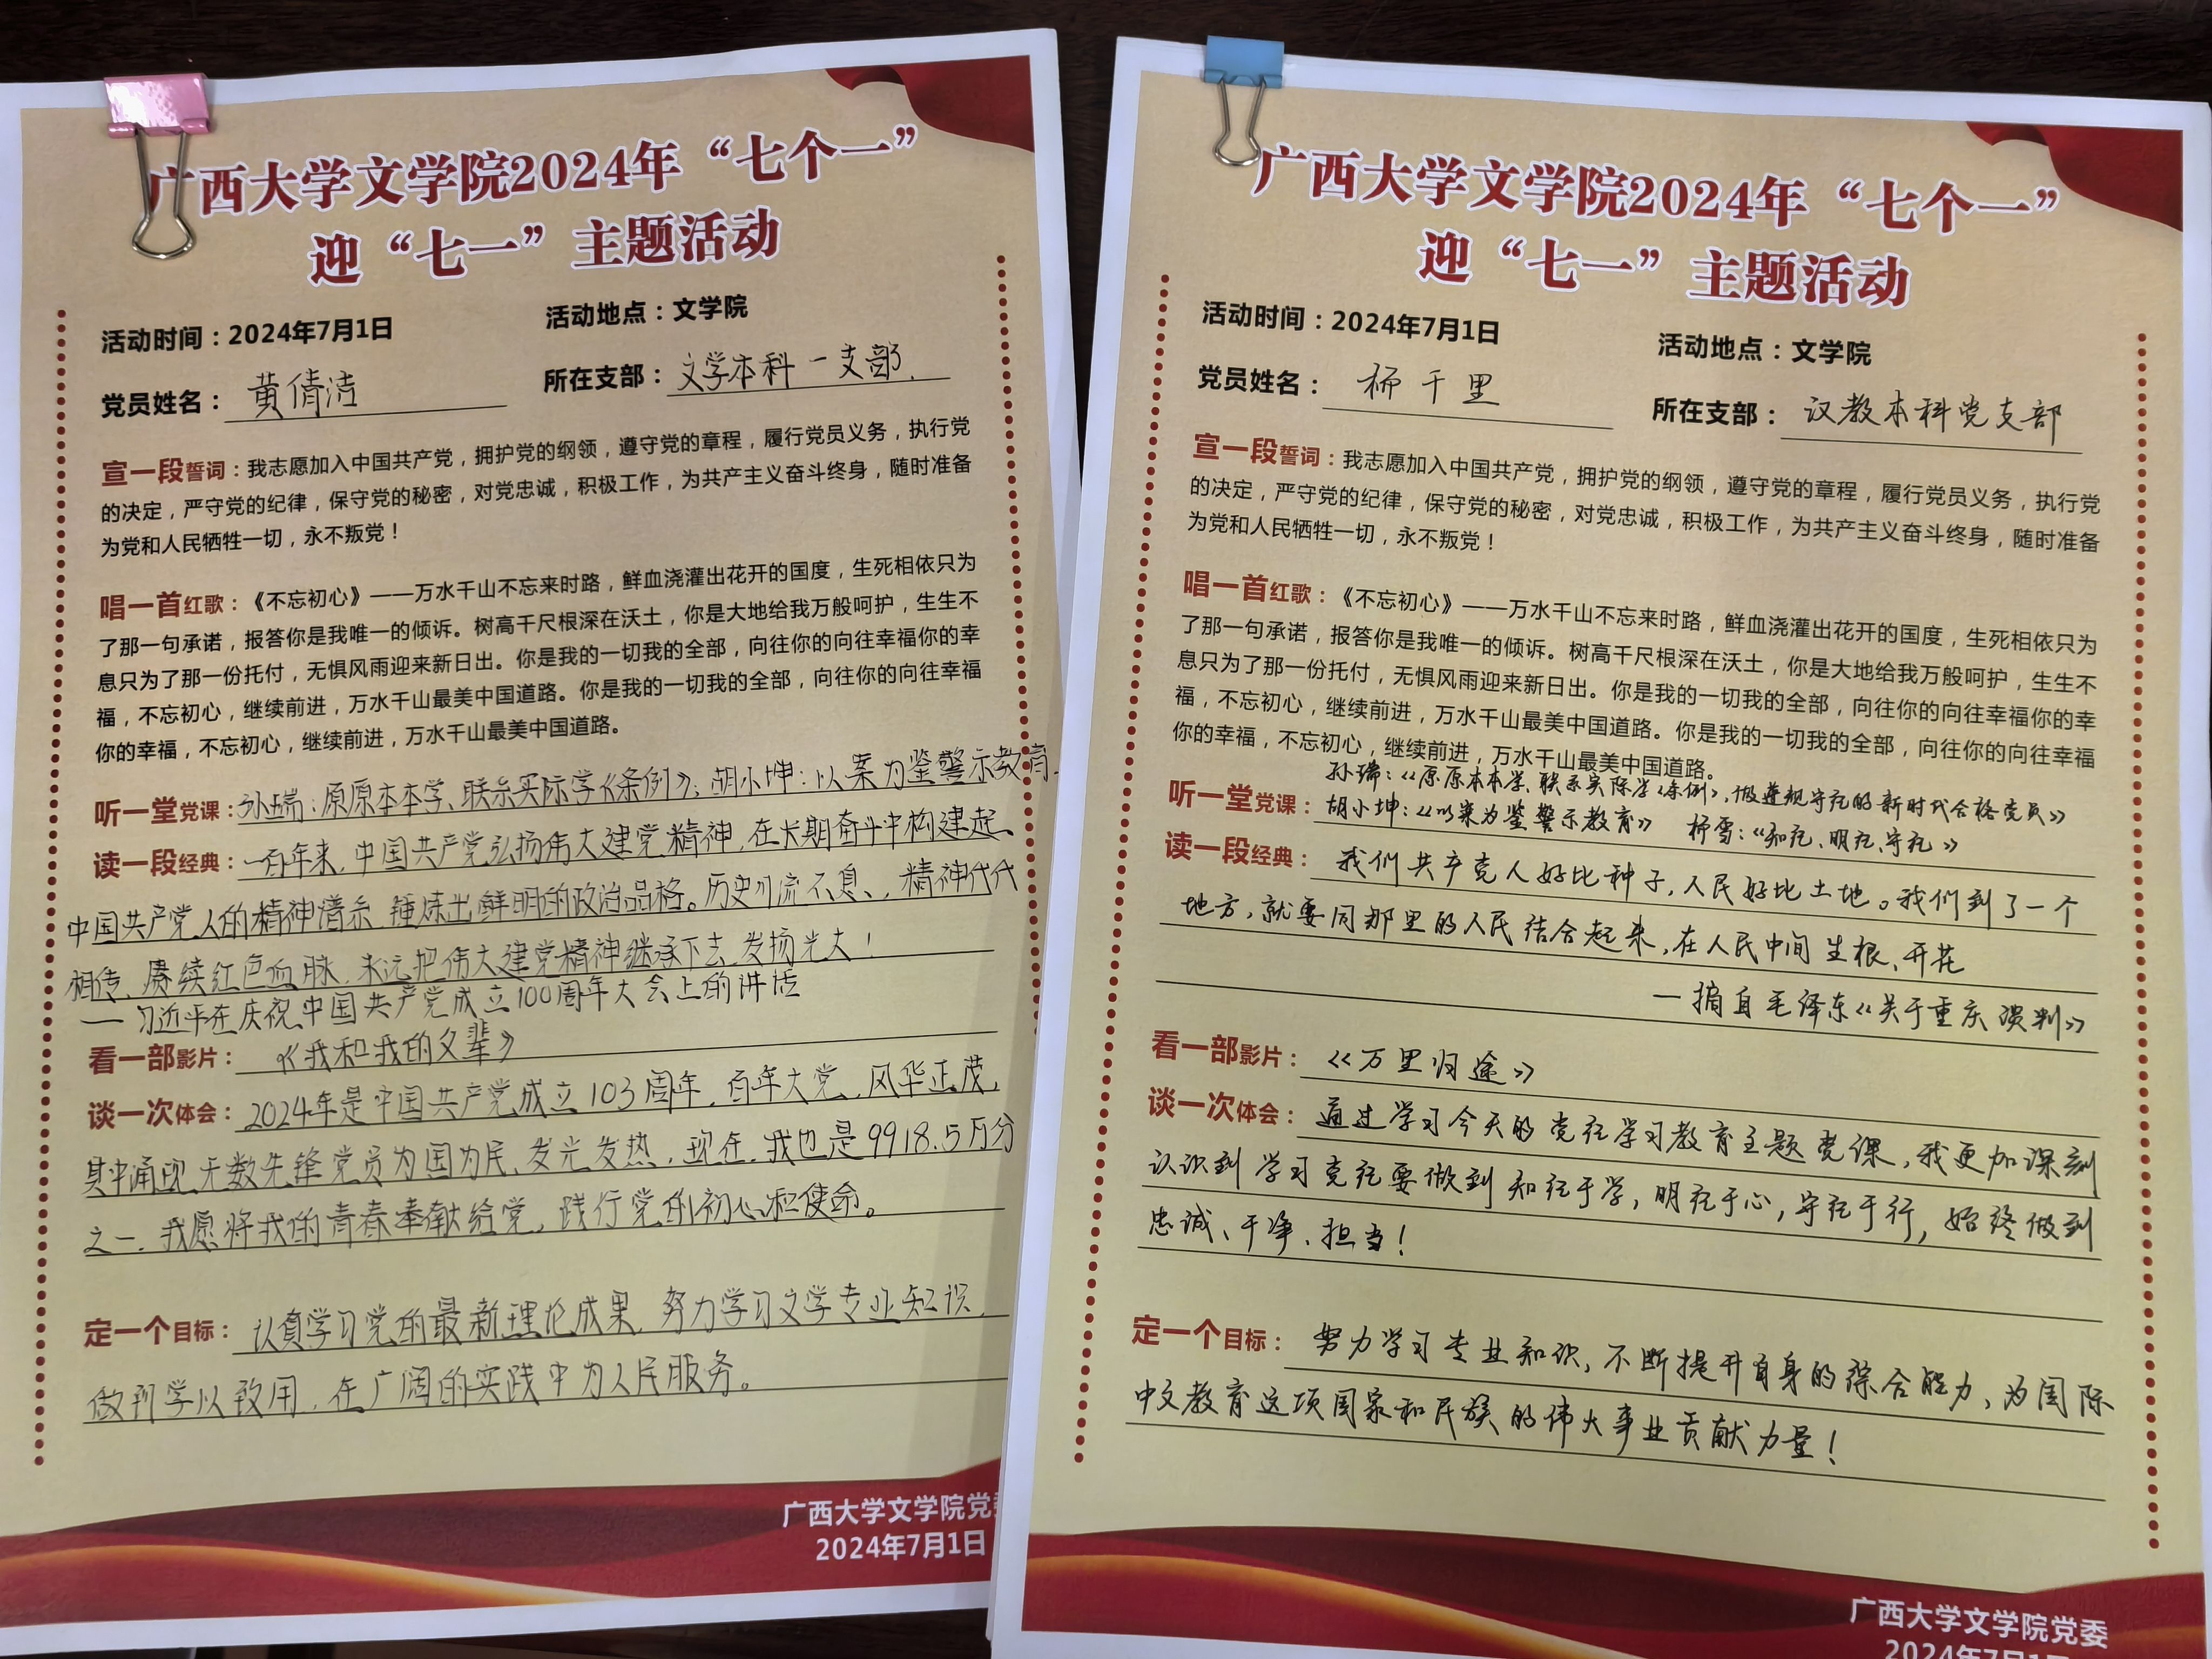 广西大学文学院2024年“七个一”
迎“七一”主题活动
活动时间：2024年7月1日
活动地点：文学院
党员姓名：黄倩洁
所在支部：文学本科一支部.
宣一段誓词：我志愿加入中国共产党，拥护党的纲领，遵守党的章程，履行党员义务，执行党
的决定，严守党的纪律，保守党的秘密，对党忠诚，积极工作，为共产主义奋斗终身，随时准备
为党和人民牺牲一切，永不叛党！
唱一首红歌：《不忘初心》——万水千山不忘来时路，鲜血浇灌出花开的国度，生死相依只为
了那一句承诺，报答你是我唯一的倾诉。树高千尺根深在沃土，你是大地给我万般呵护，生生不
息只为了那一份托付，无惧风雨迎来新日出。你是我的一切我的全部，向往你的向往幸福你的幸
福，不忘初心，继续前进，万水千山最美中国道路。你是我的一切我的全部，向往你的向往幸福
你的幸福，不忘初心，继续前进，万水千山最美中国道路。
听一堂党课：孙瑞：原原本本学、联系实际学《条例》；胡小坤：以案为鉴警示教育
读一段经典：一百年来，中国共产党弘扬伟大建党精神，在长期奋斗中构建起
中国共产党人的精神谱系，锤炼出鲜明的政治品格。历史川流不息，精神代代
相传，赓续红色血脉，永远把伟大建党精神继承下去、发扬光大！
——习近平在庆祝中国共产党成立100周年大会上的讲话
看一部影片：《我和我的父辈》
谈一次体会：2024年是中国共产党成立103周年，百年大党，风华正茂，
其中涌现无数先锋党员为国为民、发光发热，现在，我也是9918.5万分
之一，我愿将我的青春奉献给党，践行党的初心和使命。
定一个目标：认真学习党的最新理论成果，努力学习文学专业知识，
做到学以致用，在广阔的实践中为人民服务。
广西大学文学院党
2024年7月1日
广西大学文学院2024年“七个一”
迎“七一”主题活动
活动时间：2024年7月1日
活动地点：文学院
党员姓名：杨千里
所在支部：汉教本科党支部
宣一段誓词：我志愿加入中国共产党，拥护党的纲领，遵守党的章程，履行党员义务，执行党
的决定，严守党的纪律，保守党的秘密，对党忠诚，积极工作，为共产主义奋斗终身，随时准备
为党和人民牺牲一切，永不叛党！
唱一首红歌：《不忘初心》——万水千山不忘来时路，鲜血浇灌出花开的国度，生死相依只为
了那一句承诺，报答你是我唯一的倾诉。树高千尺根深在沃土，你是大地给我万般呵护，生生不
息只为了那一份托付，无惧风雨迎来新日出。你是我的一切我的全部，向往你的向往幸福你的幸
福，不忘初心，继续前进，万水千山最美中国道路。你是我的一切我的全部，向往你的向往幸福
你的幸福，不忘初心，继续前进，万水千山最美中国道路。
孙瑞：《原原本本学、联系实际学〈条例〉，做遵规守纪的新时代合格党员》
听一堂党课：胡小坤：《以案为鉴警示教育》 杨雪：《知纪、明纪、守纪》
读一段经典：我们共产党人好比种子，人民好比土地。我们到了一个
地方，就要同那里的人民结合起来，在人民中间生根、开花
—摘自毛泽东《关于重庆谈判》
看一部影片：《万里归途》
谈一次体会：通过学习今天的党纪学习教育主题党课，我更加深刻
认识到学习党纪要做到知纪于学，明纪于心，守纪于行，始终做到
忠诚、干净、担当！
定一个目标：努力学习专业知识，不断提升自身的综合能力，为国际
中文教育这项国家和民族的伟大事业贡献力量！
广西大学文学院党委
2024年7月1日